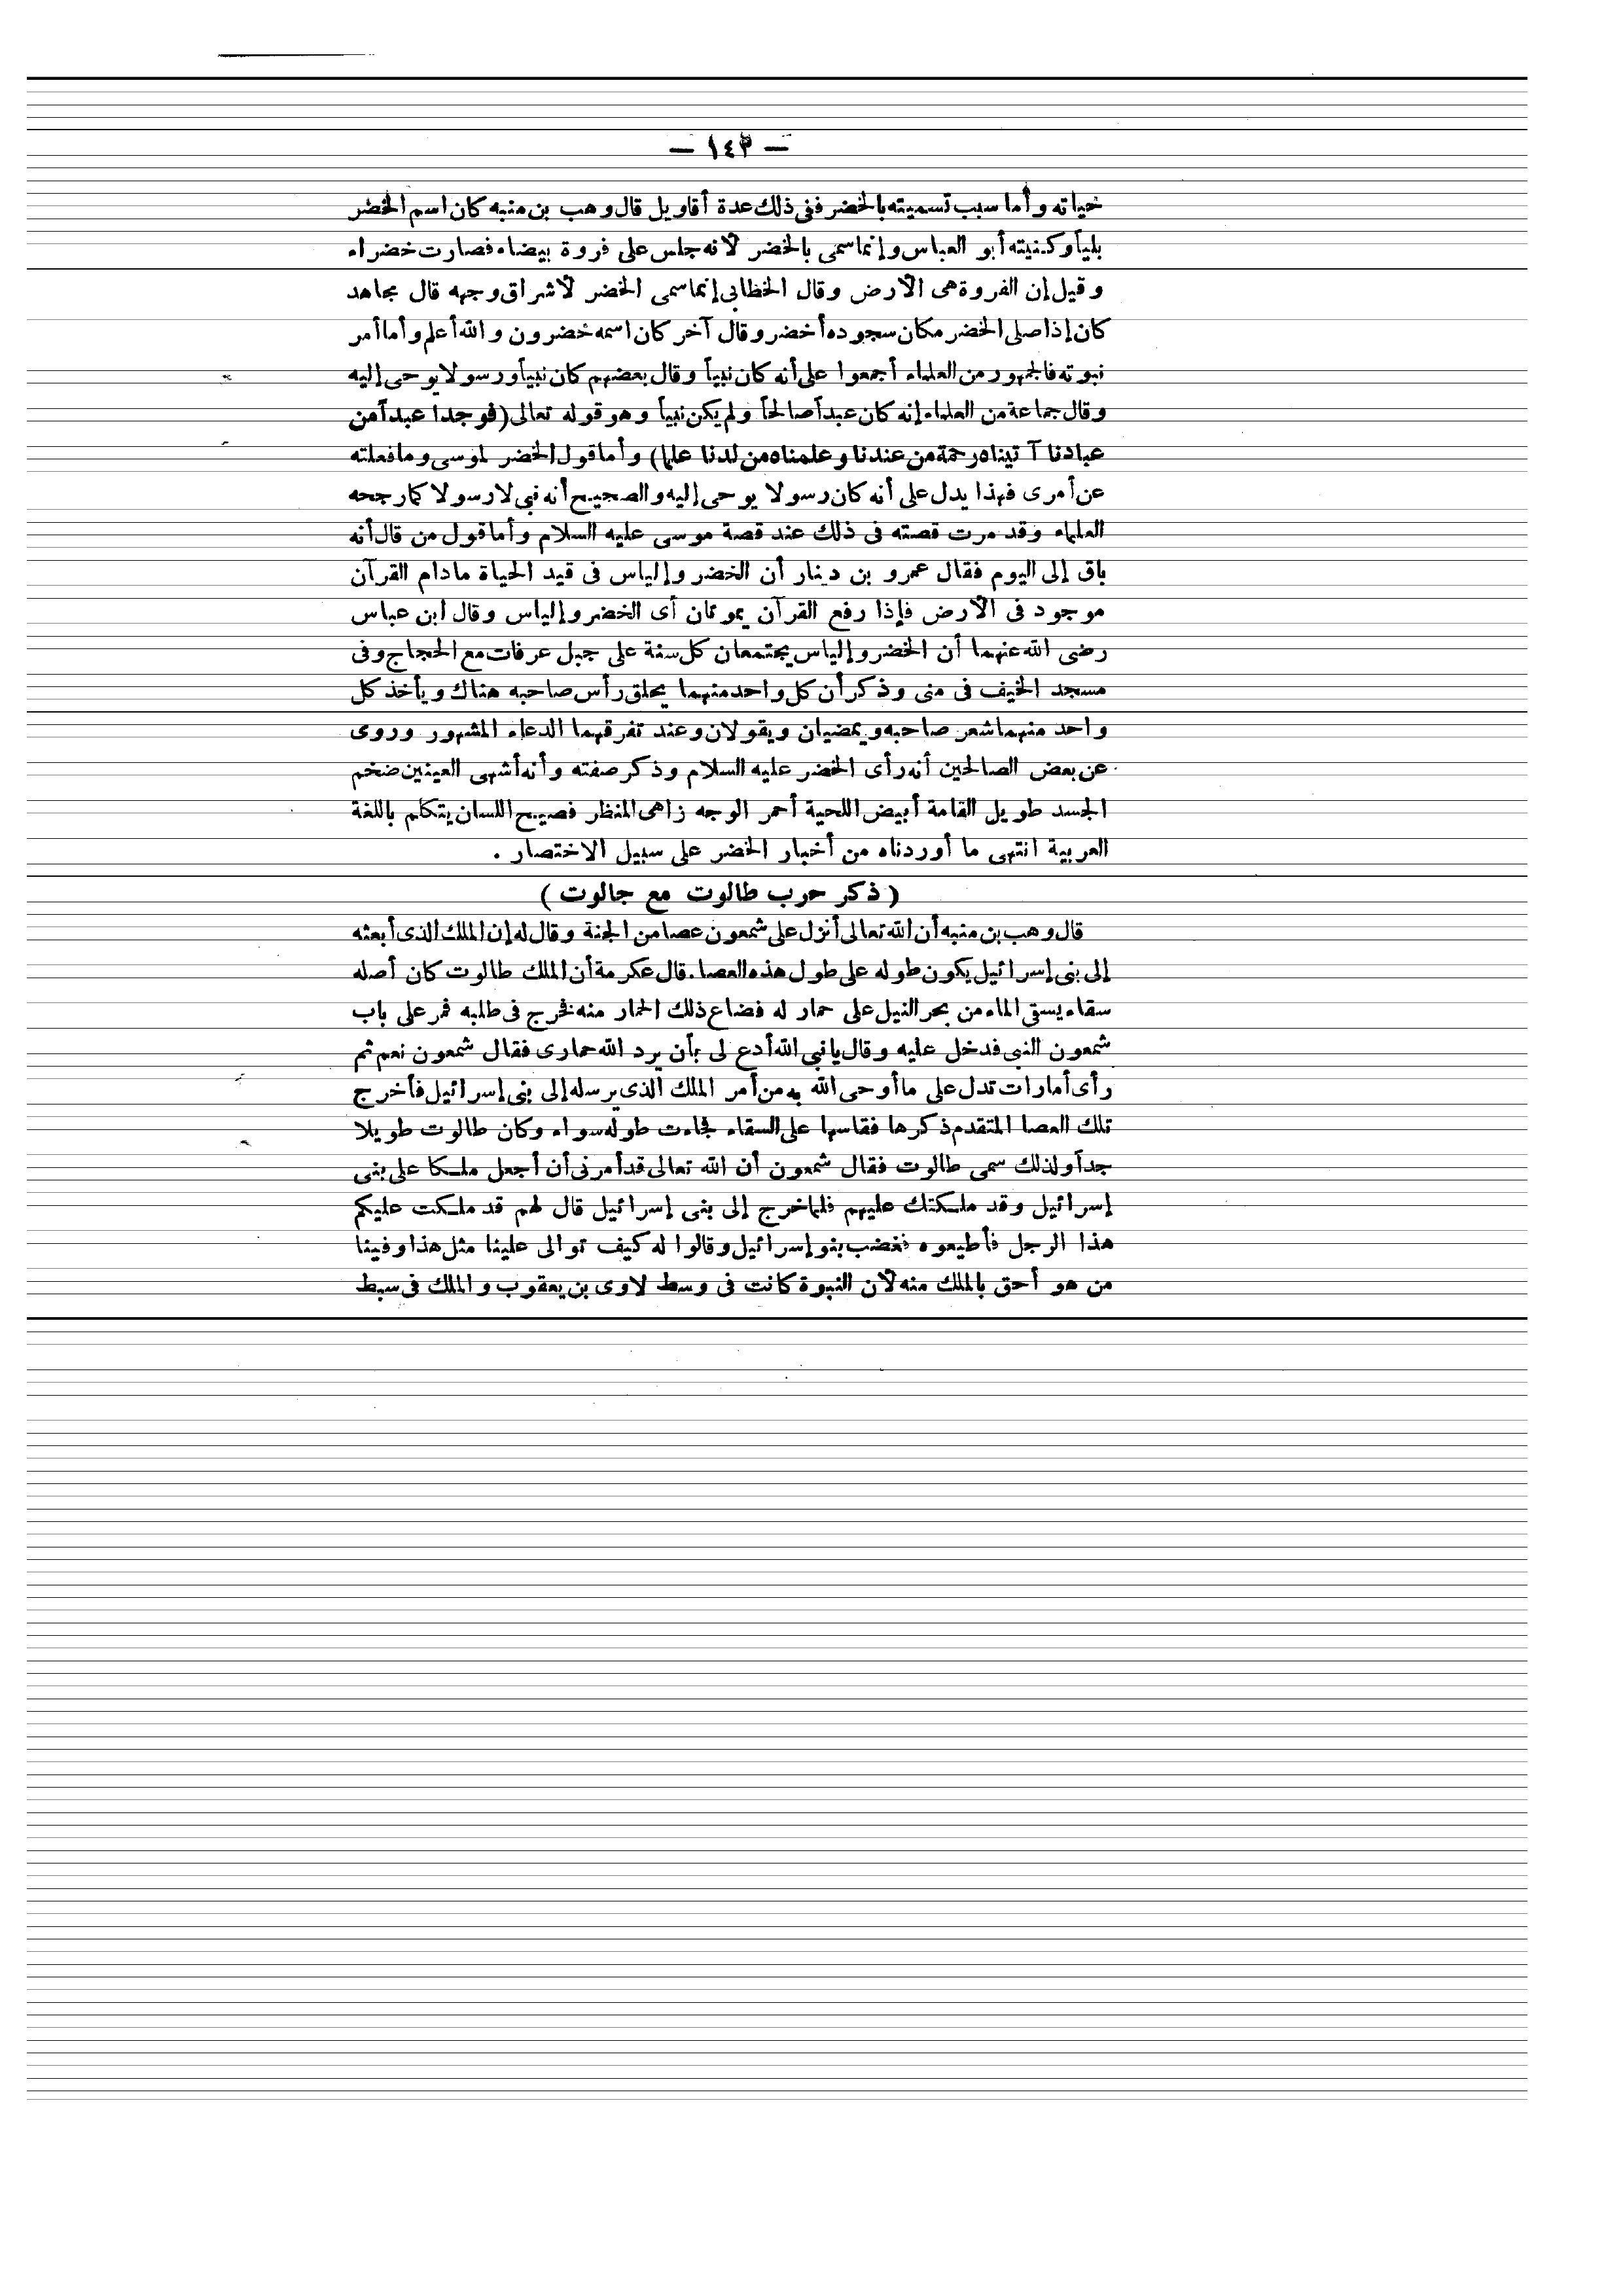 — ١٤٣ —
حياته وأما سبب تسميته بالخضر ففى ذلك عدة أقاويل قال وهب بن منبه كان اسم الخضر
بلياً وكنيته أبو العباس وإنما سمى بالخضر لأنه جلس على فروة بيضاء فصارت خضراء
وقيل إن الفروة هى الأرض وقال الخطابى إنما سمى الخضر لاشراق وجهه قال مجاهد
كان إذا صلى الخضر مكان سجوده أخضر وقال آخر كان اسمه خضرون والله أعلم وأما أمر
نبوته فالجمهور من العلماء أجمعوا على أنه كان نبياً وقال بعضهم كان نبياً ورسولا يوحى إليه
وقال جماعة من العلماء إنه كان عبداً صالحاً ولم يكن نبياً وهو قوله تعالى (فوجدا عبداً من
عبادنا آتيناه رحمة من عندنا وعلمناه من لدنا علما) وأما قول الخضر لموسى وما فعلته
عن أمرى فهذا يدل على أنه كان رسولا يوحى إليه والصحيح أنه نبى لا رسولا كما رجحه
العلماء وقد مرت قصته فى ذلك عند قصة موسى عليه السلام وأما قول من قال أنه
باق إلى اليوم فقال عمرو بن دينار أن الخضر وإلياس فى قيد الحياة مادام القرآن
موجود فى الأرض فإذا رفع القرآن يموتان أى الخضر وإلياس وقال ابن عباس
رضى الله عنهما أن الخضر وإلياس يجتمعان كل سنة على جبل عرفات مع الحجاج وفى
مسجد الخيف فى منى وذكر أن كل واحد منهما يحلق رأس صاحبه هناك ويأخذ كل
واحد منهما شعر صاحبه ويمضيان ويقولان وعند تفرقهما الدعاء المشهور وروى
عن بعض الصالحين أنه رأى الخضر عليه السلام وذكر صفته وأنه أشهى العينين ضخم
الجسد طويل القامة أبيض اللحية أحمر الوجه زاهى المنظر فصيح اللسان يتكلم باللغة
العربية انتهى ما أوردناه من أخبار الخضر على سبيل الاختصار .
( ذكر حرب طالوت مع جالوت )
قال وهب بن منبه أن الله تعالى أنزل على شمعون عصا من الجنة وقال له إن الملك الذى أبعثه
إلى بنى إسرائيل يكون طوله على طول هذه العصا . قال عكرمة أن الملك طالوت كان أصله
سقاء يستقى الماء من بحر النيل على حمار له فضاع ذلك الحمار منه فخرج فى طلبه فمر على باب
شمعون النبى فدخل عليه وقال يا نبى الله أدع لى بأن يرد الله حمارى فقال شمعون نعم ثم
رأى أمارات تدل على ما أوحى الله به من أمر الملك الذى يرسله إلى بنى إسرائيل فأخرج
تلك العصا المتقدم ذكرها فقاسها على السقاء فجاءت طوله سواء وكان طالوت طويلا
جداً ولذلك سمى طالوت فقال شمعون أن الله تعالى قد أمرنى أن أجعل ملكا على بنى
إسرائيل وقد ملكتك عليهم فلما خرج إلى بنى إسرائيل قال لهم قد ملكت عليكم
هذا الرجل فأطيعوه فغضب بنو إسرائيل وقالوا له كيف توالى علينا مثل هذا وفينا
من هو أحق بالملك منه لأن النبوة كانت فى وسط لاوى بن يعقوب والملك فى سبط